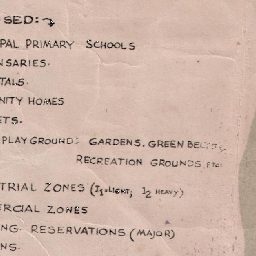 SED:
PAL PRIMARY SCHOOLS
NSARIES.
TALS.
NITY HOMES
ETS.
PLAYGROUND: GARDENS, GREEN BELTS,
RECREATION GROUNDS, ETC.
TRIAL ZONES (I1=LIGHT; I2 HEAVY)
ERCIAL ZONES
NG RESERVATIONS (MAJOR)
NS.